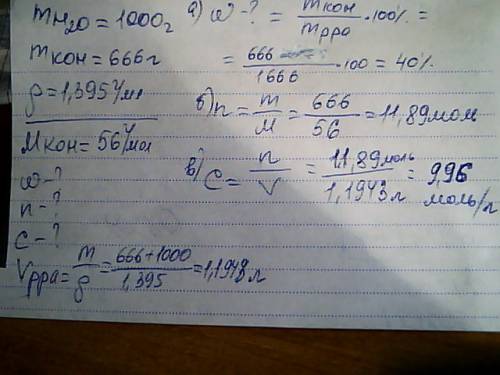 mH₂O = 1000г
mКОН = 666г
ρ = 1,395 г/мл
MКОН = 56 г/мол
ω - ?
n - ?
c - ?
Vрра = m/ρ = (666+1000)/1,395 = 1,1943 л
а) ω - ? = mКОН/mрра · 100% =
= 666/1666 · 100 = 40%
б) n = m/M = 666/56 = 11,89 мол
в) C = n/V = 11,89 моль/1,1943 л = 9,96 моль/л